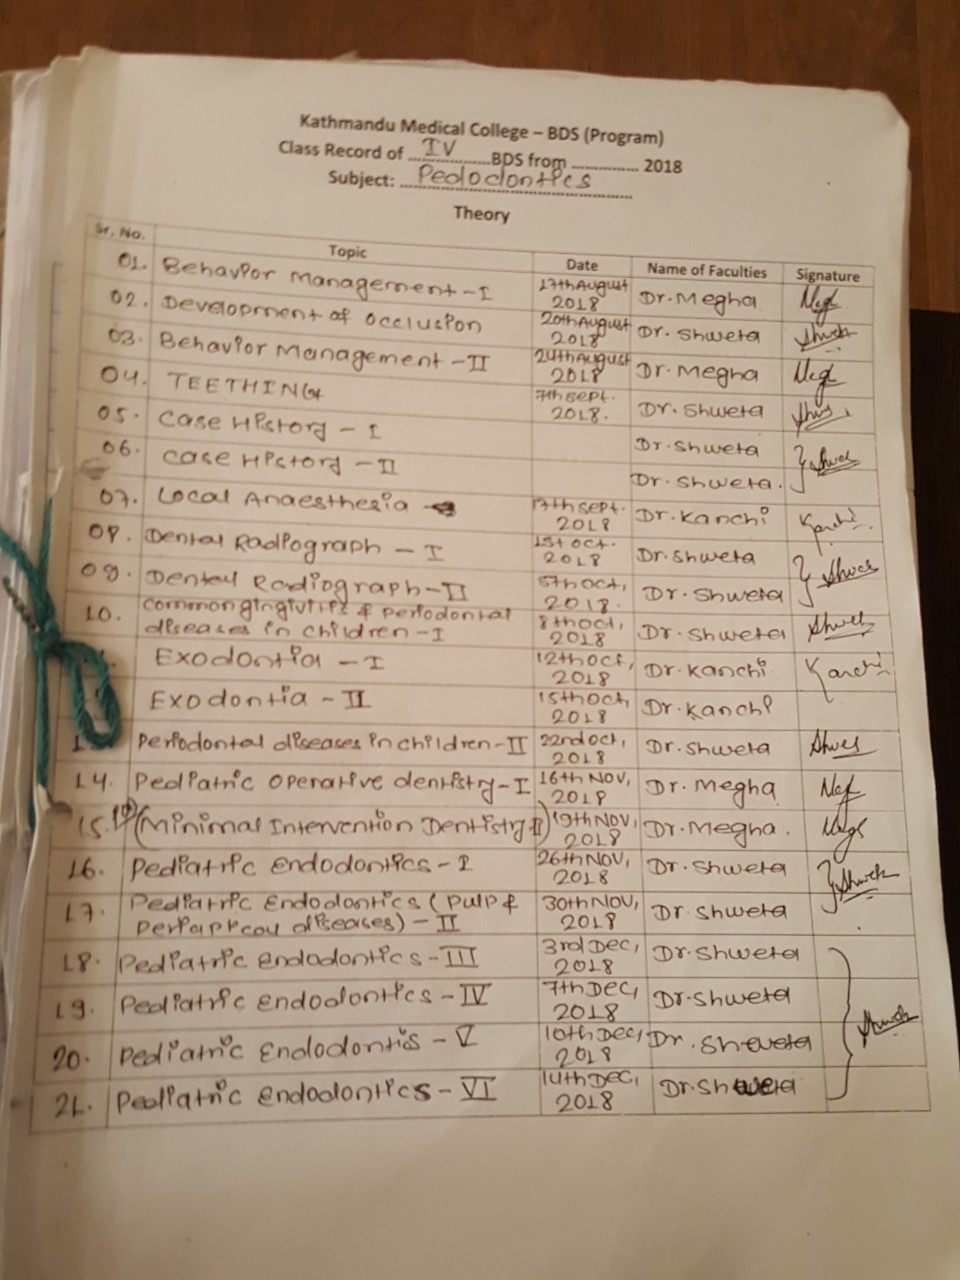 Kathmandu Medical College – BDS (Program)
Class Record of ... IV ... BDS from ............... 2018
Subject: ... Pedodontics ...
Theory
Sr. No. Topic Date Name of Faculties Signature
01. Behavior Management - I 17th August 2018 Dr. Megha
02. Development of Occlusion 20th August 2018 Dr. Shweta
03. Behavior Management - II 24th August 2018 Dr. Megha
04. TEETHING 7th Sept. 2018. Dr. Shweta
05. Case History - I Dr. Shweta
06. Case History - II Dr. Shweta.
07. Local Anaesthesia 17th Sept. 2018 Dr. Kanchi
08. Dental Radiograph - I 1st Oct. 2018 Dr. Shweta
09. Dental Radiograph - II 5th Oct, 2018. Dr. Shweta
10. Common gingivitis & periodontal
diseases in children - I 8th Oct, 2018 Dr. Shweta
Exodontia - I 12th Oct, 2018 Dr. Kanchi
Exodontia - II 15th Oct, 2018 Dr. Kanchi
Periodontal diseases in children - II 22nd Oct, 2018 Dr. Shweta
14. Pediatric Operative dentistry - I 16th Nov, 2018 Dr. Megha
15. (Minimal Intervention Dentistry II) 19th Nov, 2018 Dr. Megha.
16. Pediatric Endodontics - I 26th Nov, 2018 Dr. Shweta
17. Pediatric Endodontics (Pulp &
Periapical diseases) - II 30th Nov, 2018 Dr. Shweta
18. Pediatric Endodontics - III 3rd Dec, 2018 Dr. Shweta
19. Pediatric Endodontics - IV 7th Dec, 2018 Dr. Shweta
20. Pediatric Endodontis - V 10th Dec, 2018 Dr. Shweta
21. Pediatric Endodontics - VI 14th Dec, 2018 Dr. Shweta